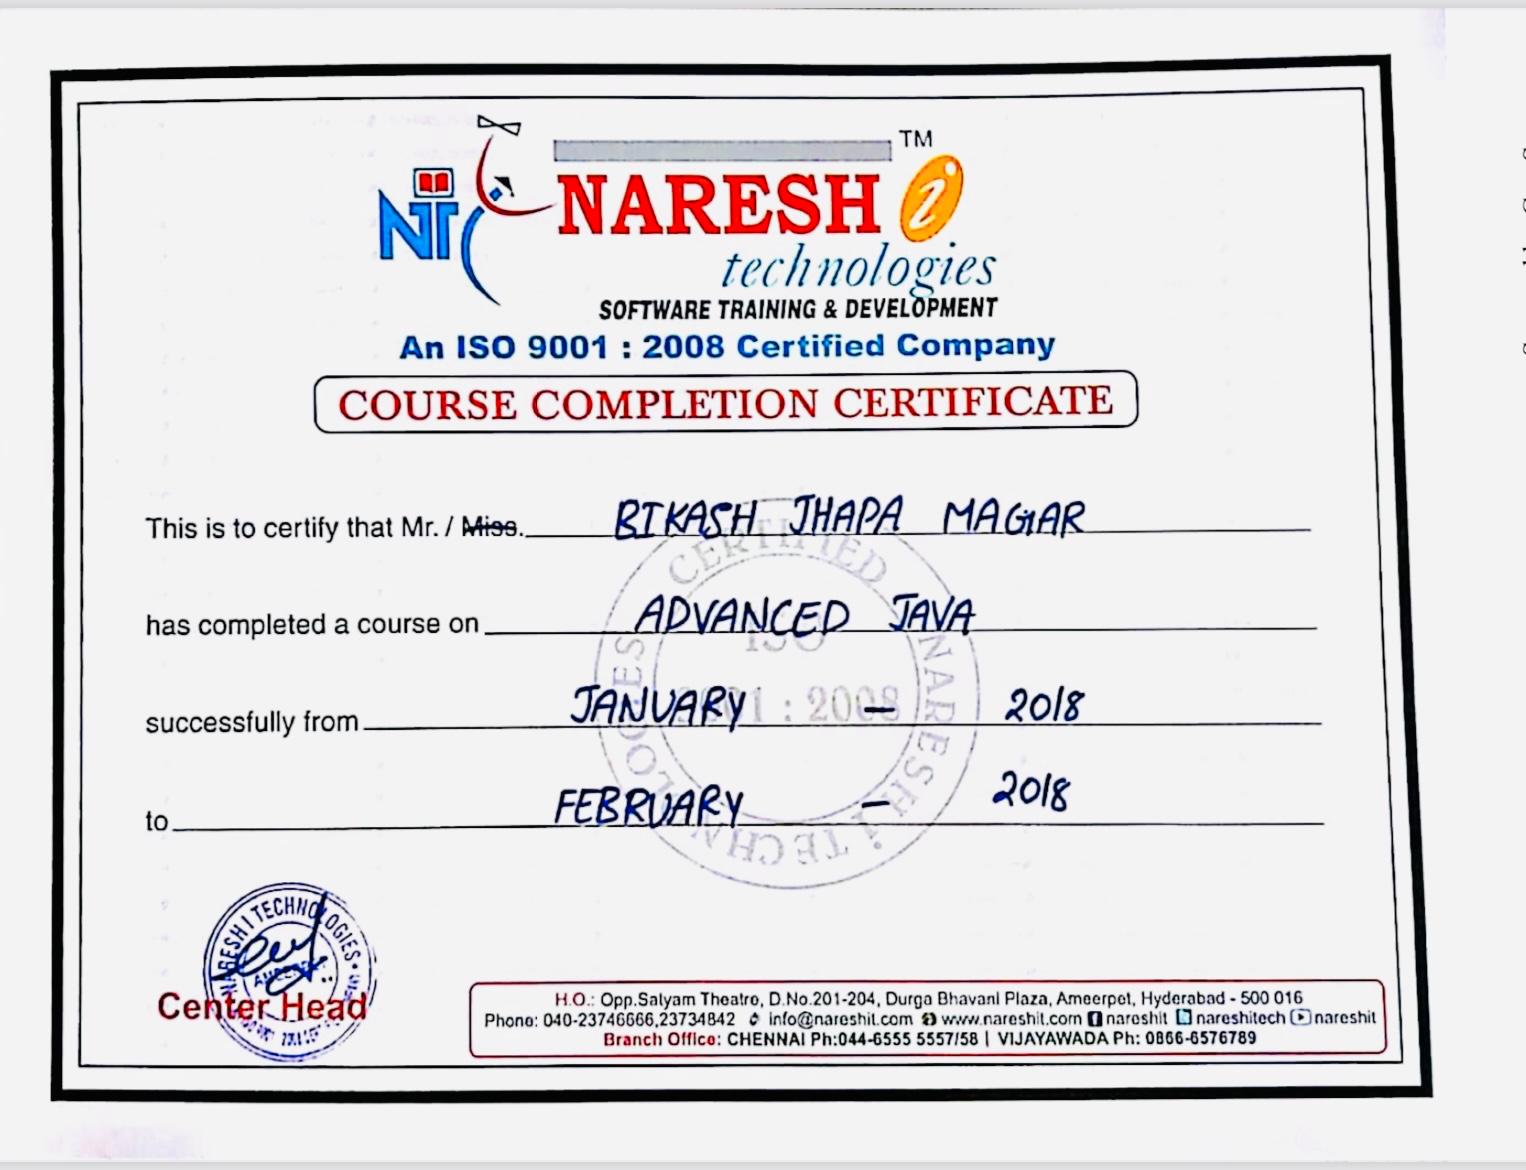 TM
NT
NARESH i
technologies
SOFTWARE TRAINING & DEVELOPMENT
An ISO 9001 : 2008 Certified Company
COURSE COMPLETION CERTIFICATE
This is to certify that Mr. / Miss. BIKASH THAPA MAGAR
has completed a course on ADVANCED JAVA
successfully from JANUARY - 2018
to FEBRUARY - 2018
CERTIFIED NARESH i TECHNOLOGIES
ISO
9001 : 2008
NARESH I TECHNOLOGIES
Center Head
H.O.: Opp.Satyam Theatre, D.No.201-204, Durga Bhavani Plaza, Ameerpet, Hyderabad - 500 016
Phone: 040-23746666,23734842 info@nareshit.com www.nareshit.com f nareshit nareshitech nareshit
Branch Office: CHENNAI Ph:044-6555 5557/58 | VIJAYAWADA Ph: 0866-6576789